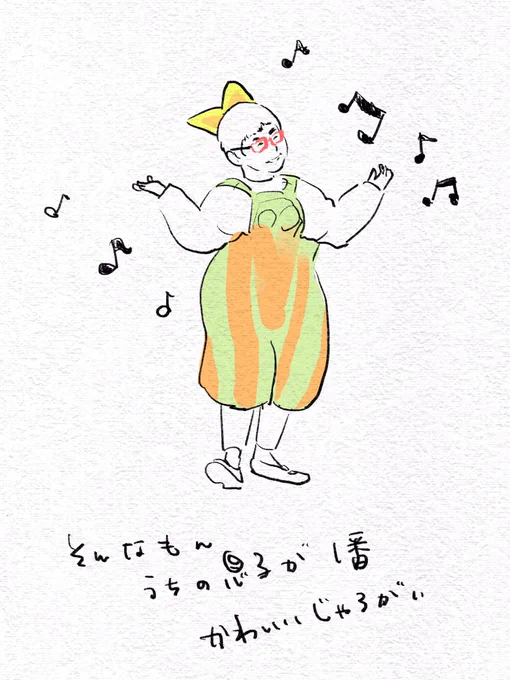 そんなもん
うちの息子が 1番
かわいいじゃろがい